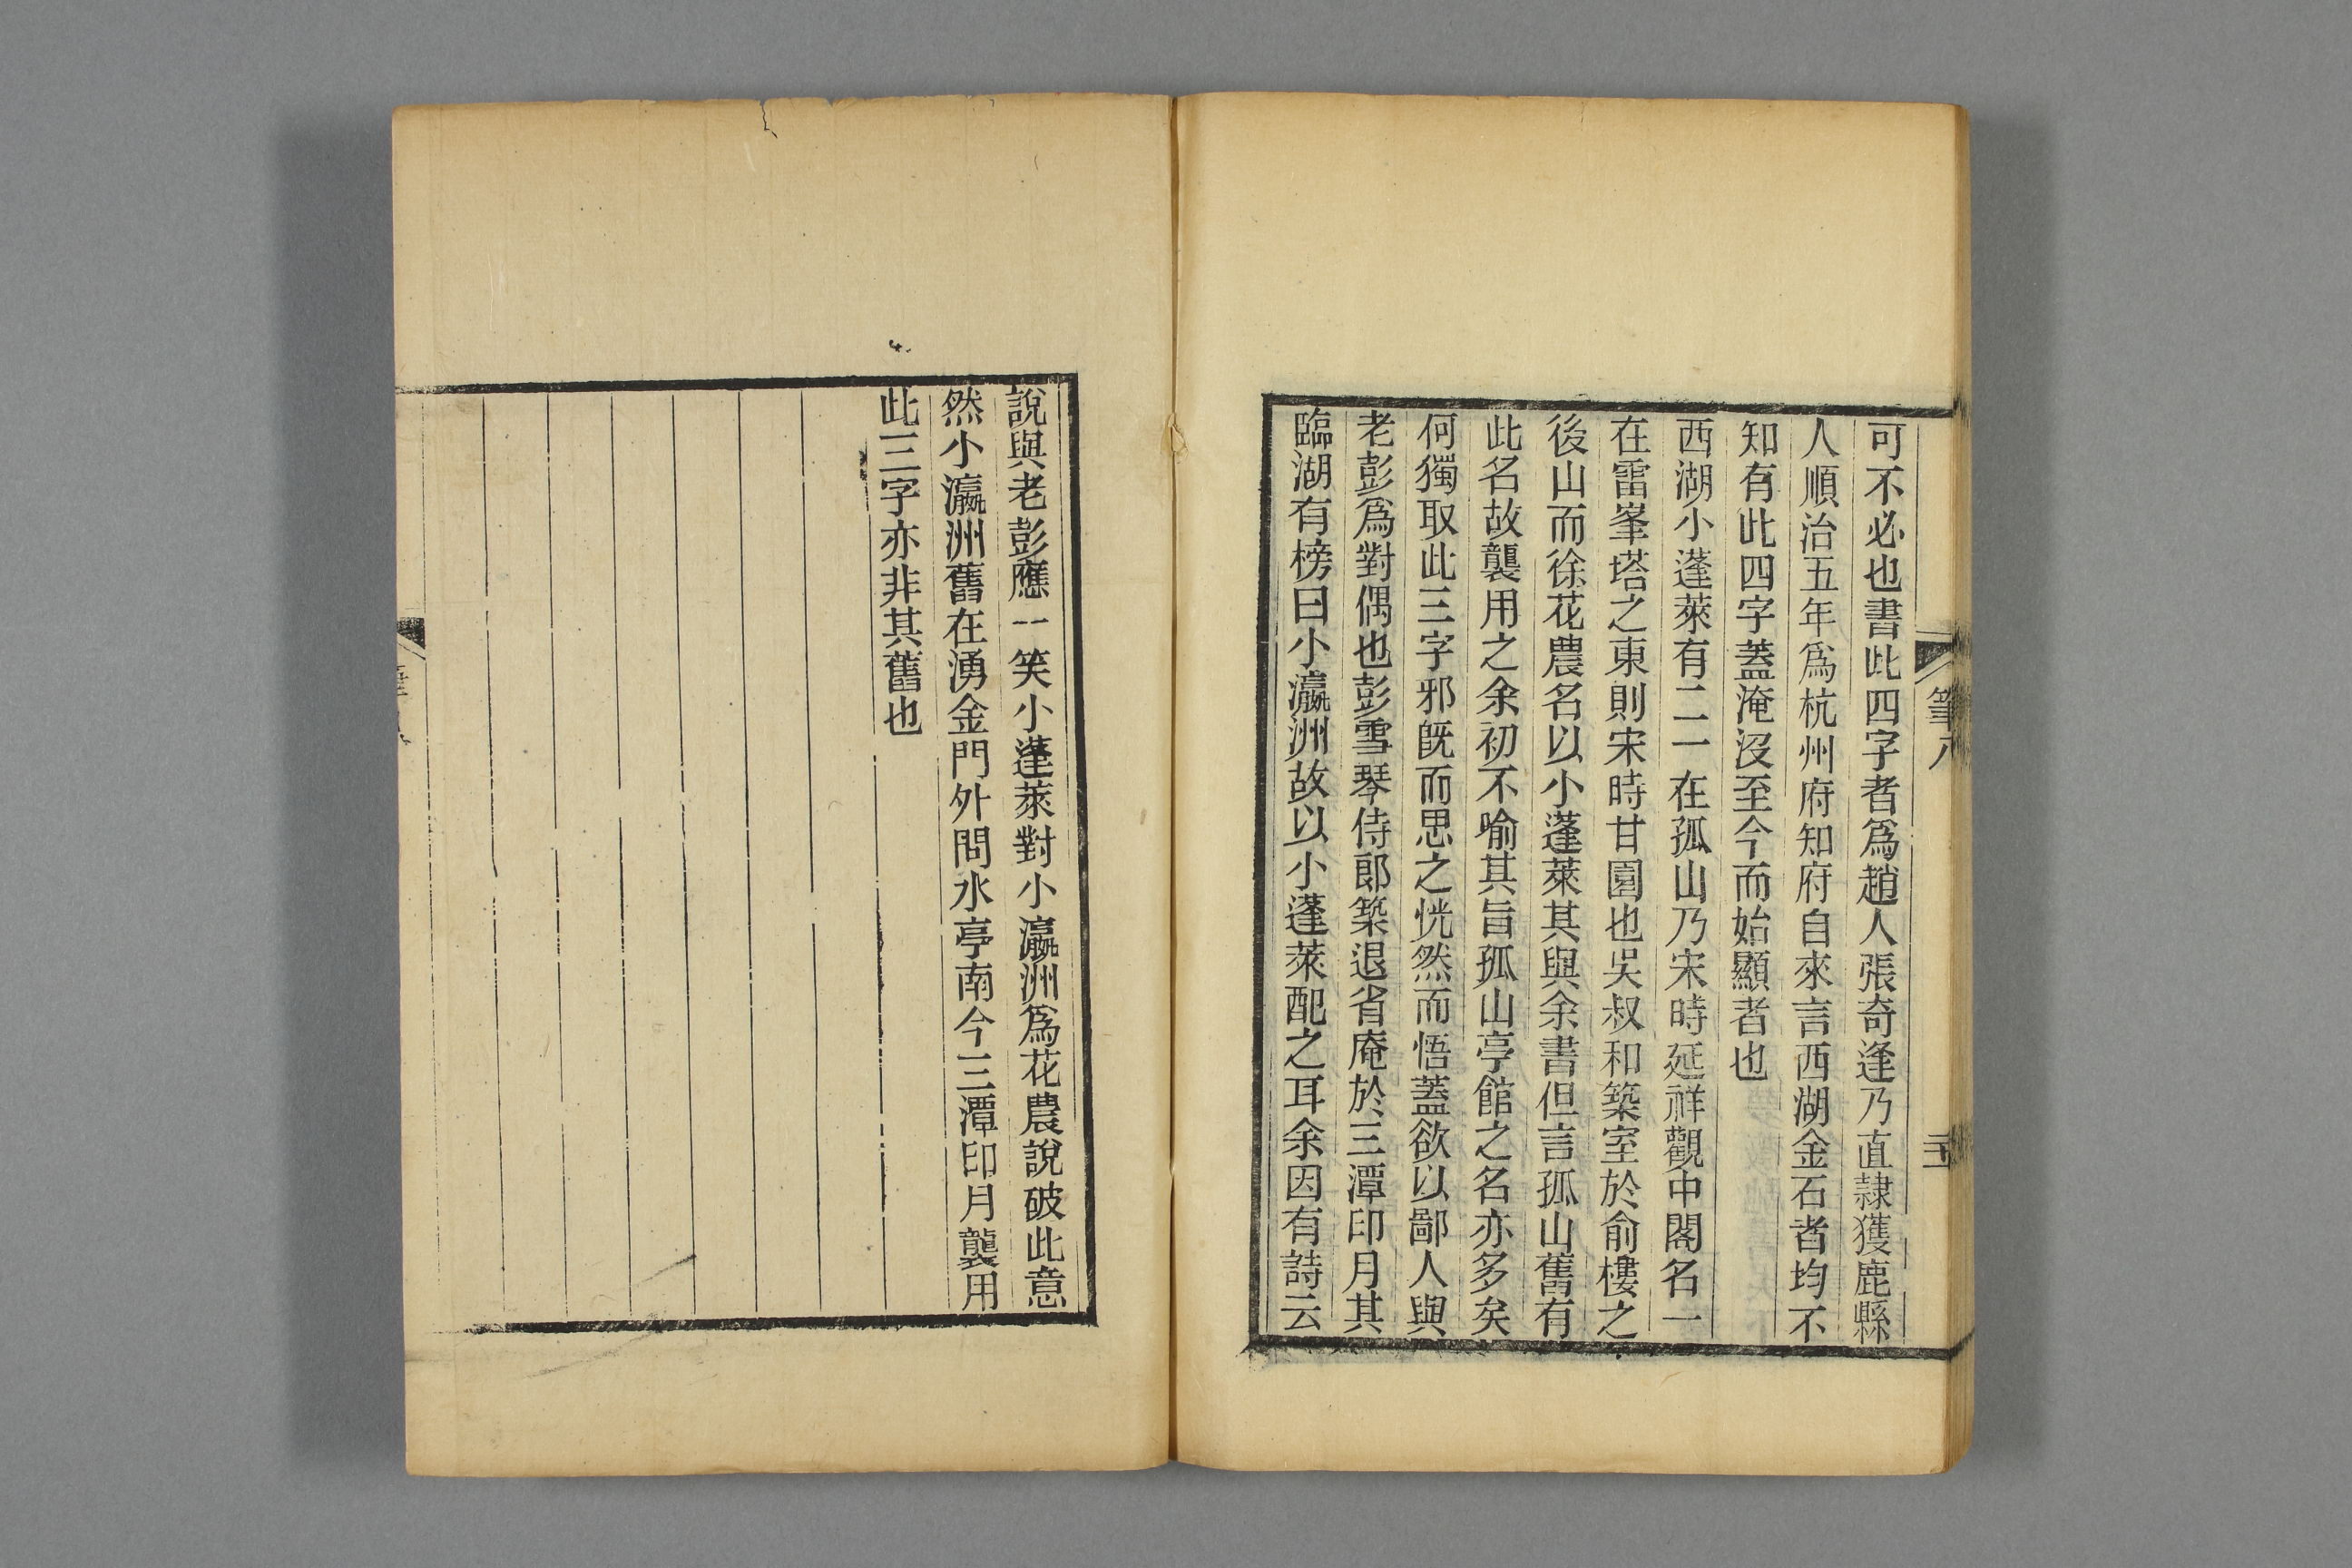 可不必也書此四字者爲趙人張奇逢乃直隷獲鹿縣
人順治五年爲杭州府知府自來言西湖金石者均不
知有此四字蓋淹沒至今而始顯者也
西湖小蓬萊有二一在孤山乃宋時延祥觀中閣名一
在雷峯塔之東則宋時甘園也吳叔和築室於俞樓之
後山而徐花農名以小蓬萊其與余書但言孤山舊有
此名故襲用之余初不喻其旨孤山亭館之名亦多矣
何獨取此三字邪旣而思之恍然而悟蓋欲以鄙人與
老彭爲對偶也彭雪琴侍郎築退省庵於三潭印月其
臨湖有榜曰小瀛洲故以小蓬萊配之耳余因有詩云
說與老彭應一笑小蓬萊對小瀛洲爲花農說破此意
然小瀛洲舊在湧金門外問水亭南今三潭印月襲用
此三字亦非其舊也
筆八